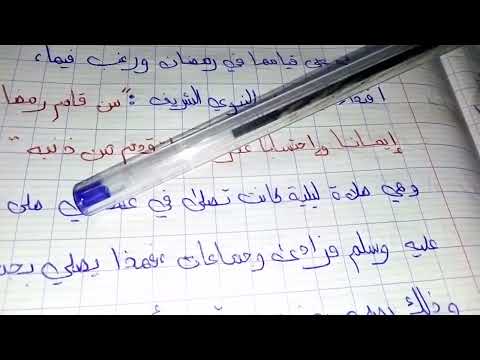 قيامها في رمضان ورغب فيها،
النبوي الشريف: "من قام رمضا
إيمانا واحتسابا تقدم من ذنبه"
وهي صلاة ليلية كانت تصلى في صلى
عليه وسلم فرادى وجماعات، فهذا يصلي
وذلك